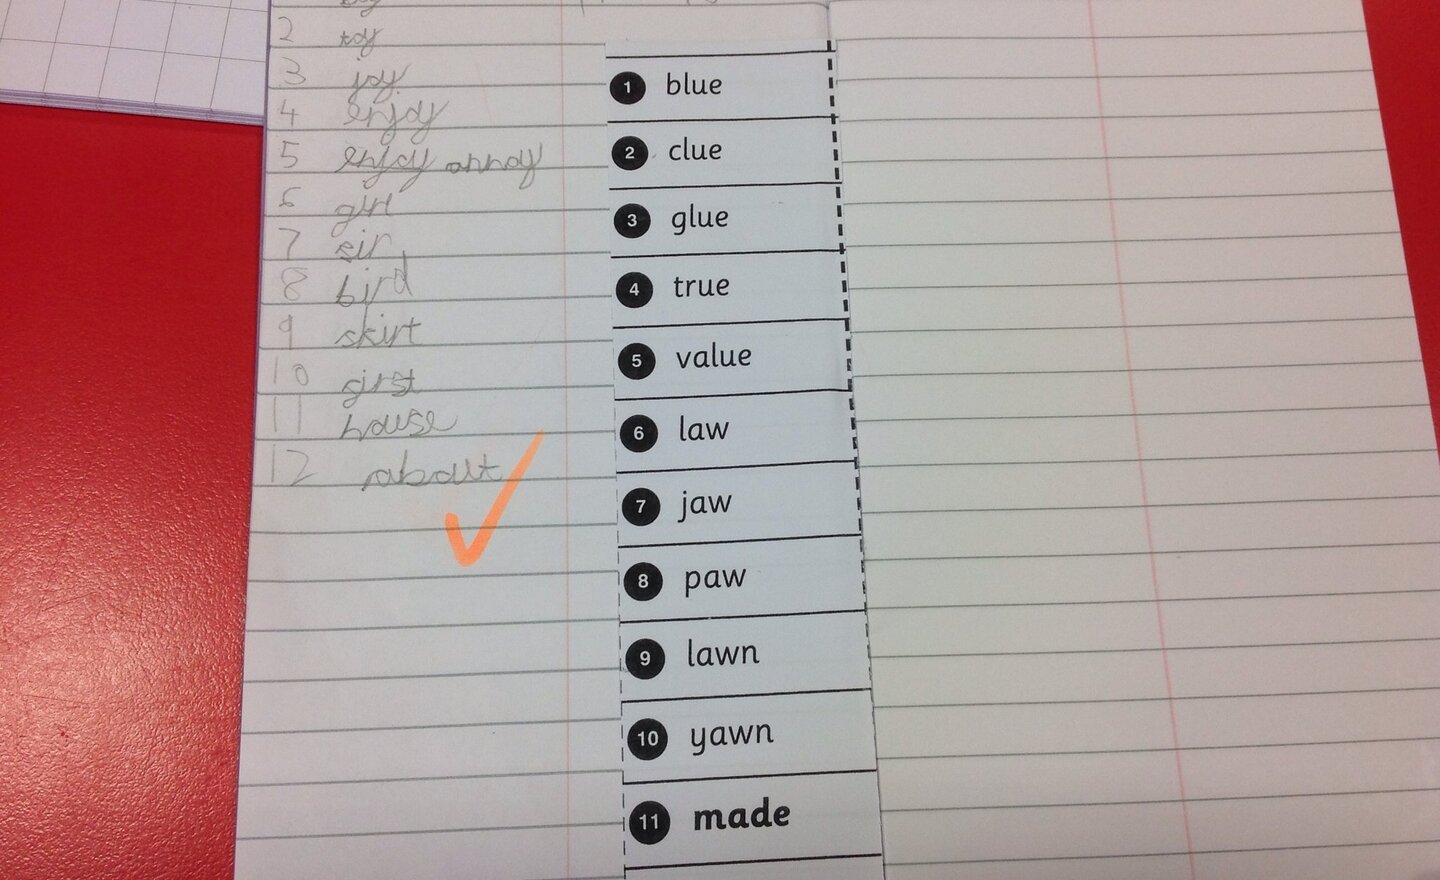 2 toy
3 joy
4 enjoy
5 enjoy annoy
6 girl
7 sir
8 bird
9 skirt
10 girst
11 house
12 about
1 blue
2 clue
3 glue
4 true
5 value
6 law
7 jaw
8 paw
9 lawn
10 yawn
11 made